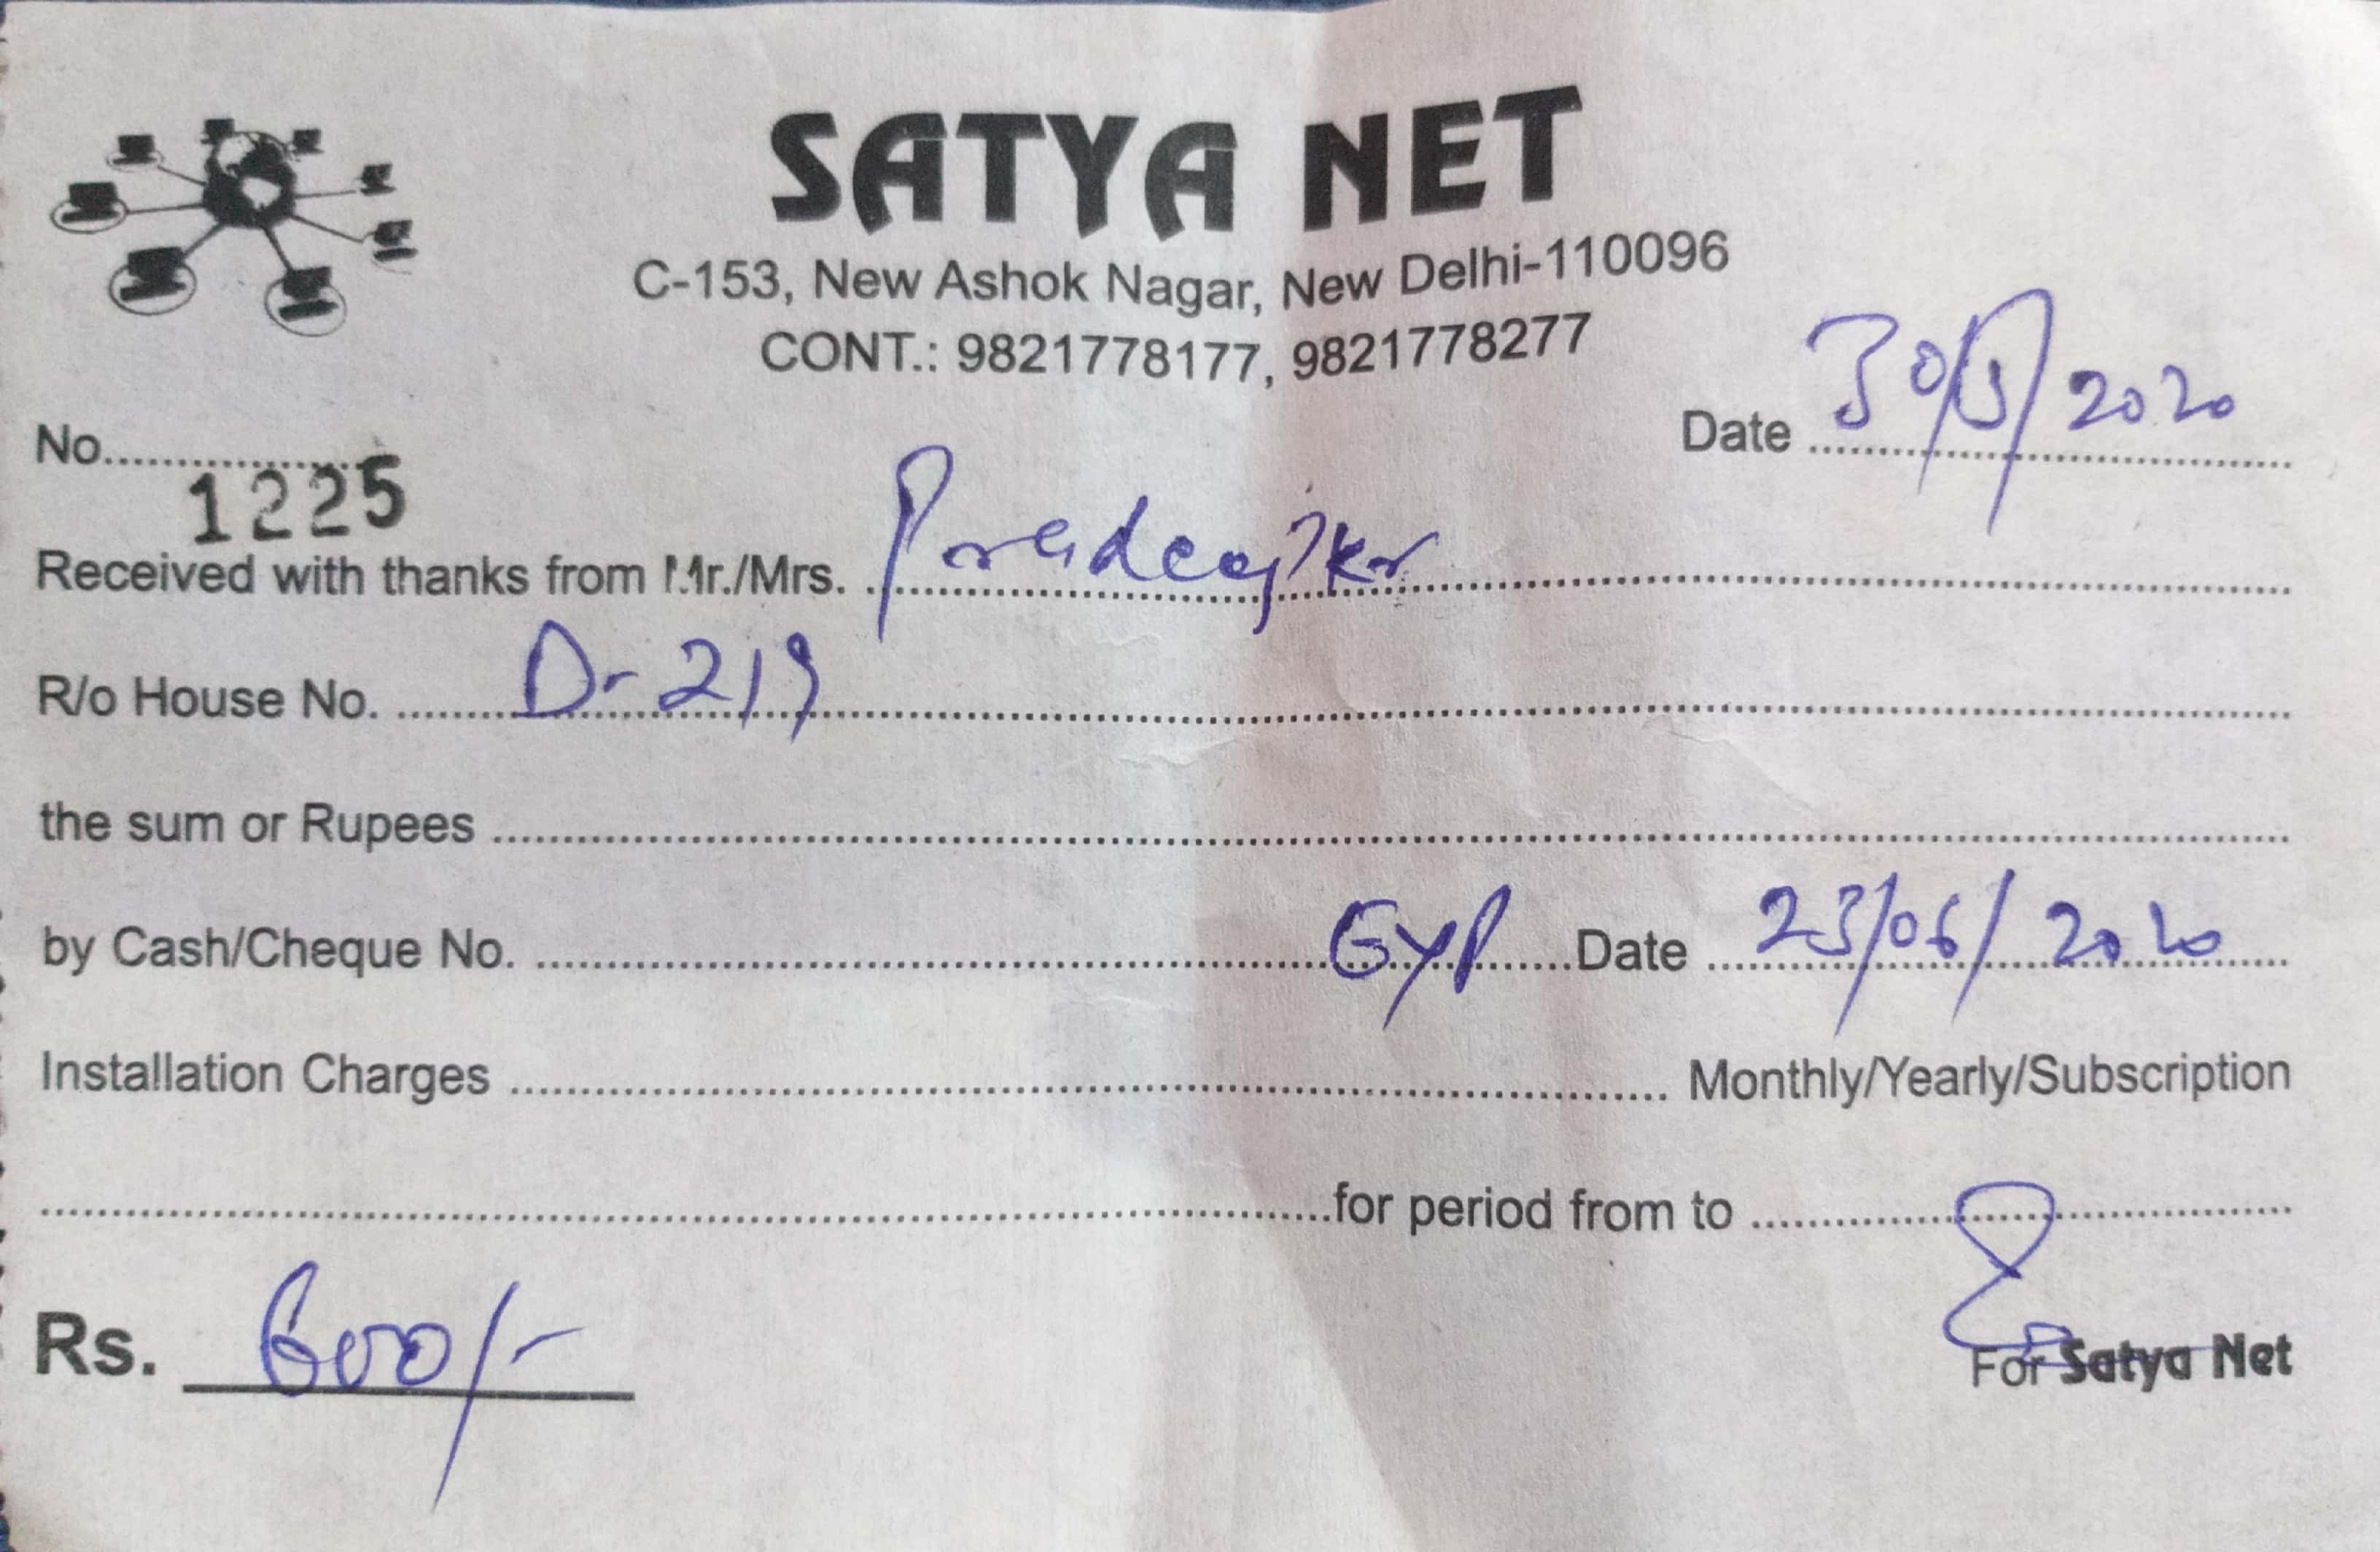 SATYA NET
C-153, New Ashok Nagar, New Delhi-110096
CONT.: 9821778177, 9821778277
No. 1225 Date 30/5/2020
Received with thanks from Mr./Mrs. Pradeep Kr
R/o House No. D-219
the sum or Rupees
by Cash/Cheque No. Exp Date 23/06/2020
Installation Charges Monthly/Yearly/Subscription
for period from to
Rs. 600/-
For Satya Net